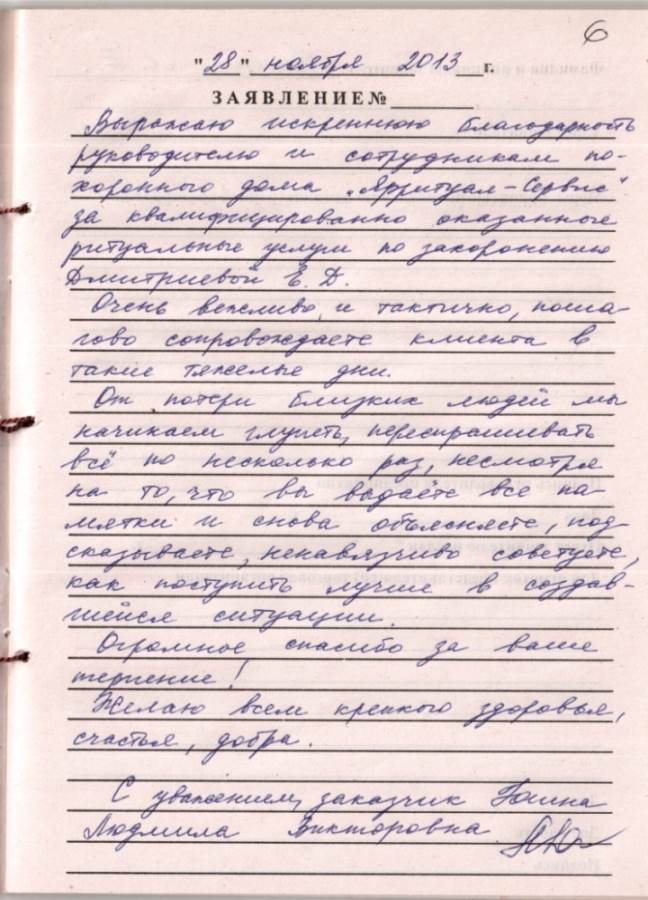 6
"28" ноября 2013 г.
ЗАЯВЛЕНИЕ№
Выражаю искреннюю благодарность
руководителю и сотрудникам по-
хоронного дома „Ярритуал-Сервис"
за квалифицированно оказанные
ритуальные услуги по захоронению
Дмитриевой Е. Д.
Очень вежливо и тактично, поша-
гово сопровождаете клиента в
такие тяжелые дни.
От потери близких людей мы
начинаем глупеть, переспрашивать
всё по несколько раз, несмотря
на то, что вы выдаёте все па-
мятки и снова объясняете, под
сказываете, ненавязчиво советуете,
как поступить лучше в создав-
шейся ситуации.
Огромное спасибо за ваше
терпение!
Желаю всем крепкого здоровья,
счастья, добра.
С уважением, заказчик
Людмила Викторовна